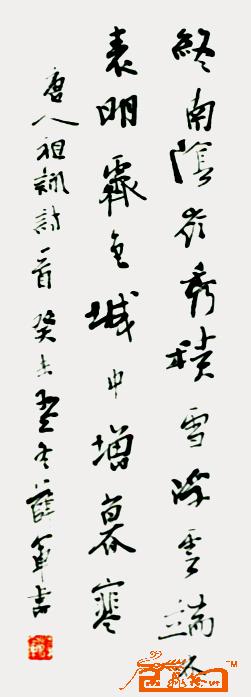 終南陰岺秀積雪浮雲端林
表明霽色城中增暮寒
唐人祖詠詩一首癸未孟冬薛軍書
TM